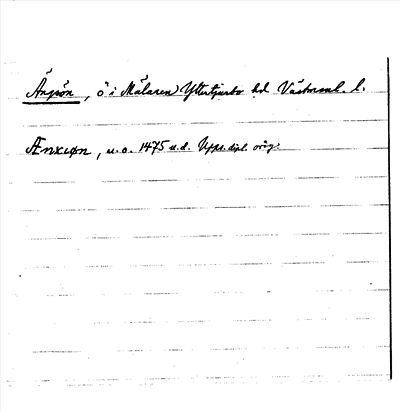 Ängsön, ö i Mälaren Yttertjurbo hd Västmanl. l.
Ænxiøn, u.o. 1475 u.d. Upps. dipl. orig.